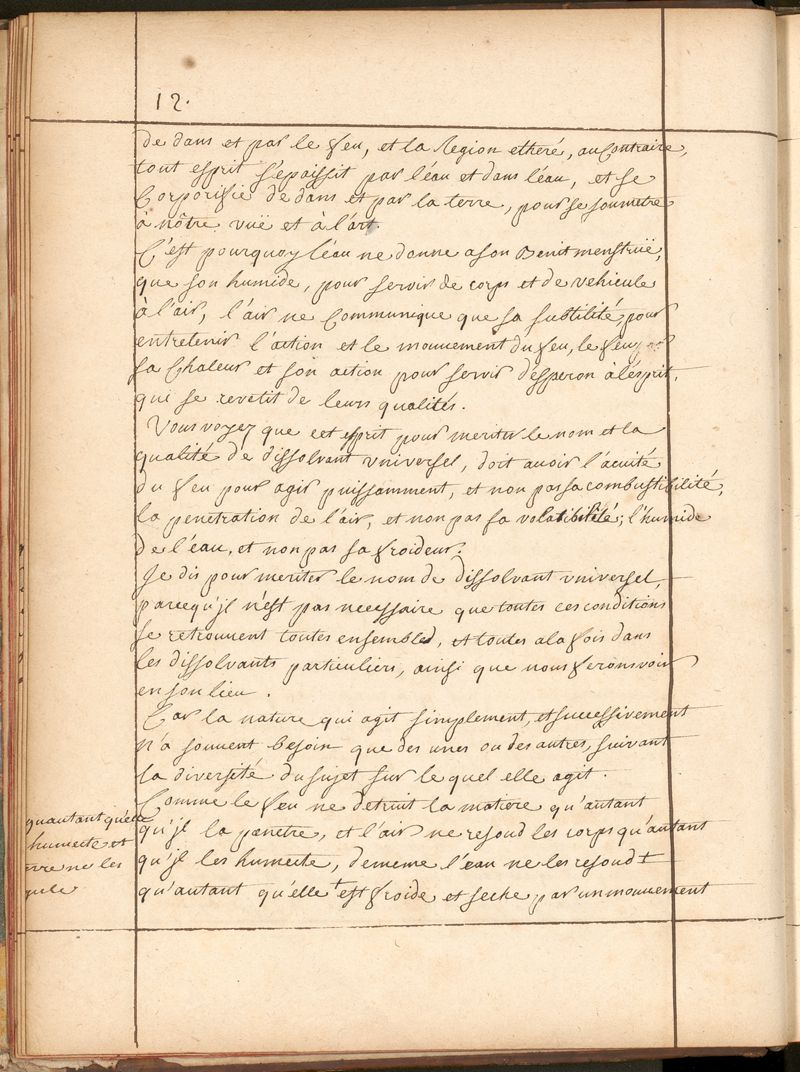 12.
de dans et par le feu, et la Region etheré, au Contraire,
tout esprit s'epaissit par l'éau et dans l'éau, et se
Corporifie de dans et par la terre, pour se soumetre
à nôtre vuë et à l'art.
C'est pourquoy l'éau ne donne a son Benit menstruë,
que son humide, pour servir de corps et de vehicule
à l'air, l'air ne Communique que sa subtilité, pour
entretenir l'action et le mouvement du feu, le feu
sa Chaleur et son action pour servir d'esperon à l'esprit,
qui se revetit de leurs qualités.
Vous voyez que cet esprit pour meriter le nom et la
qualité de dissolvant vniversel, doit avoir l'acuité
du feu pour agir puissamment, et non pas sa combustibilité,
la penetration de l'air, et non pas sa volatibilité; l'humide
de l'eau, et non pas sa froideur.
Je dis pour meriter le nom de dissolvant vniversel,
parcequ'jl n'est pas necessaire que toutes ces conditions
se retrouvent toutes ensembles, et toutes a la fois dans
les dissolvants particuliers, ainsi que nous ferons voir
en son lieu.
Car la nature qui agit simplement, et successivement
n'a souvent besoin que des unes ou des autres, suivant
la diversité du sujet sur le quel elle agit.
Comme le feu ne detruit la matiere qu'autant
qu'jl la penetre, et l'air ne resoud les corps qu'autant
qu'jl les humecte, de meme l'eau ne les resoud +
qu'autant qu'elle + est froide et seche par un mouvement
quautant qu'elle
humecte et
ne les